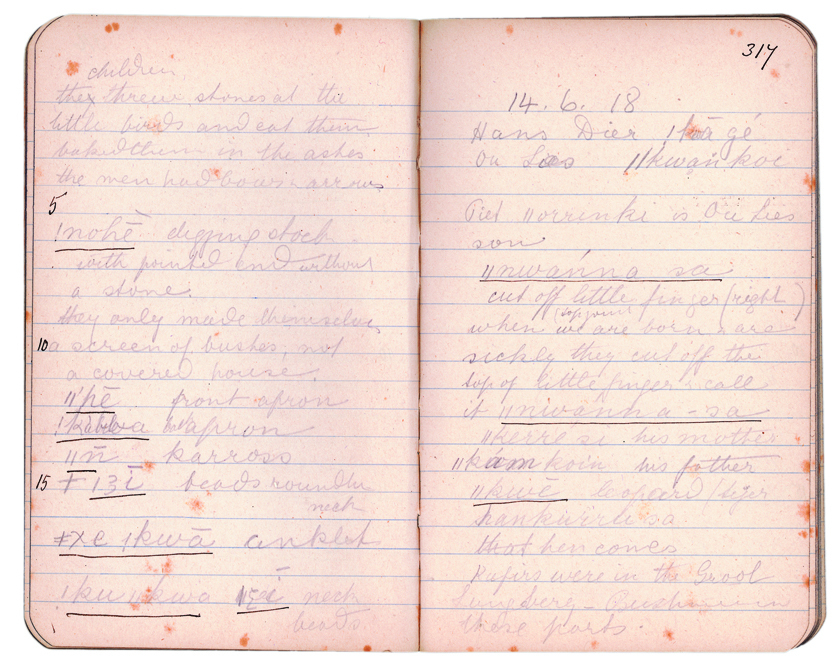 children
they threw stones at the
little birds and eat them
baked them in the ashes
the men had bows & arrows
5
!nohē digging stock
with pointed end without
a stone.
they only made themselves
10 a screen of bushes, not
a covered house.
ǁ'pē front apron
apron
ǁn̄ karross
15 ǂ ī beads round the
neck
ǂxe ǀkwā anklet
neck
beads
317
14. 6. 18
Hans Dier
Ou Lies ǁkwaṅ koi
Piet ǁorrinki is Ou Lies
son
ǁnwańna sa
cut off little finger (right)
(top joint
when are born & are
sickly they cut off the
top of little finger & call
it ǁnwanna-sa
ǁkerre si his mother
ǁkam koin his father
ǁkwē leopard / tiger
sa
that hen comes
Kafirs were in the Groot
in
these parts.